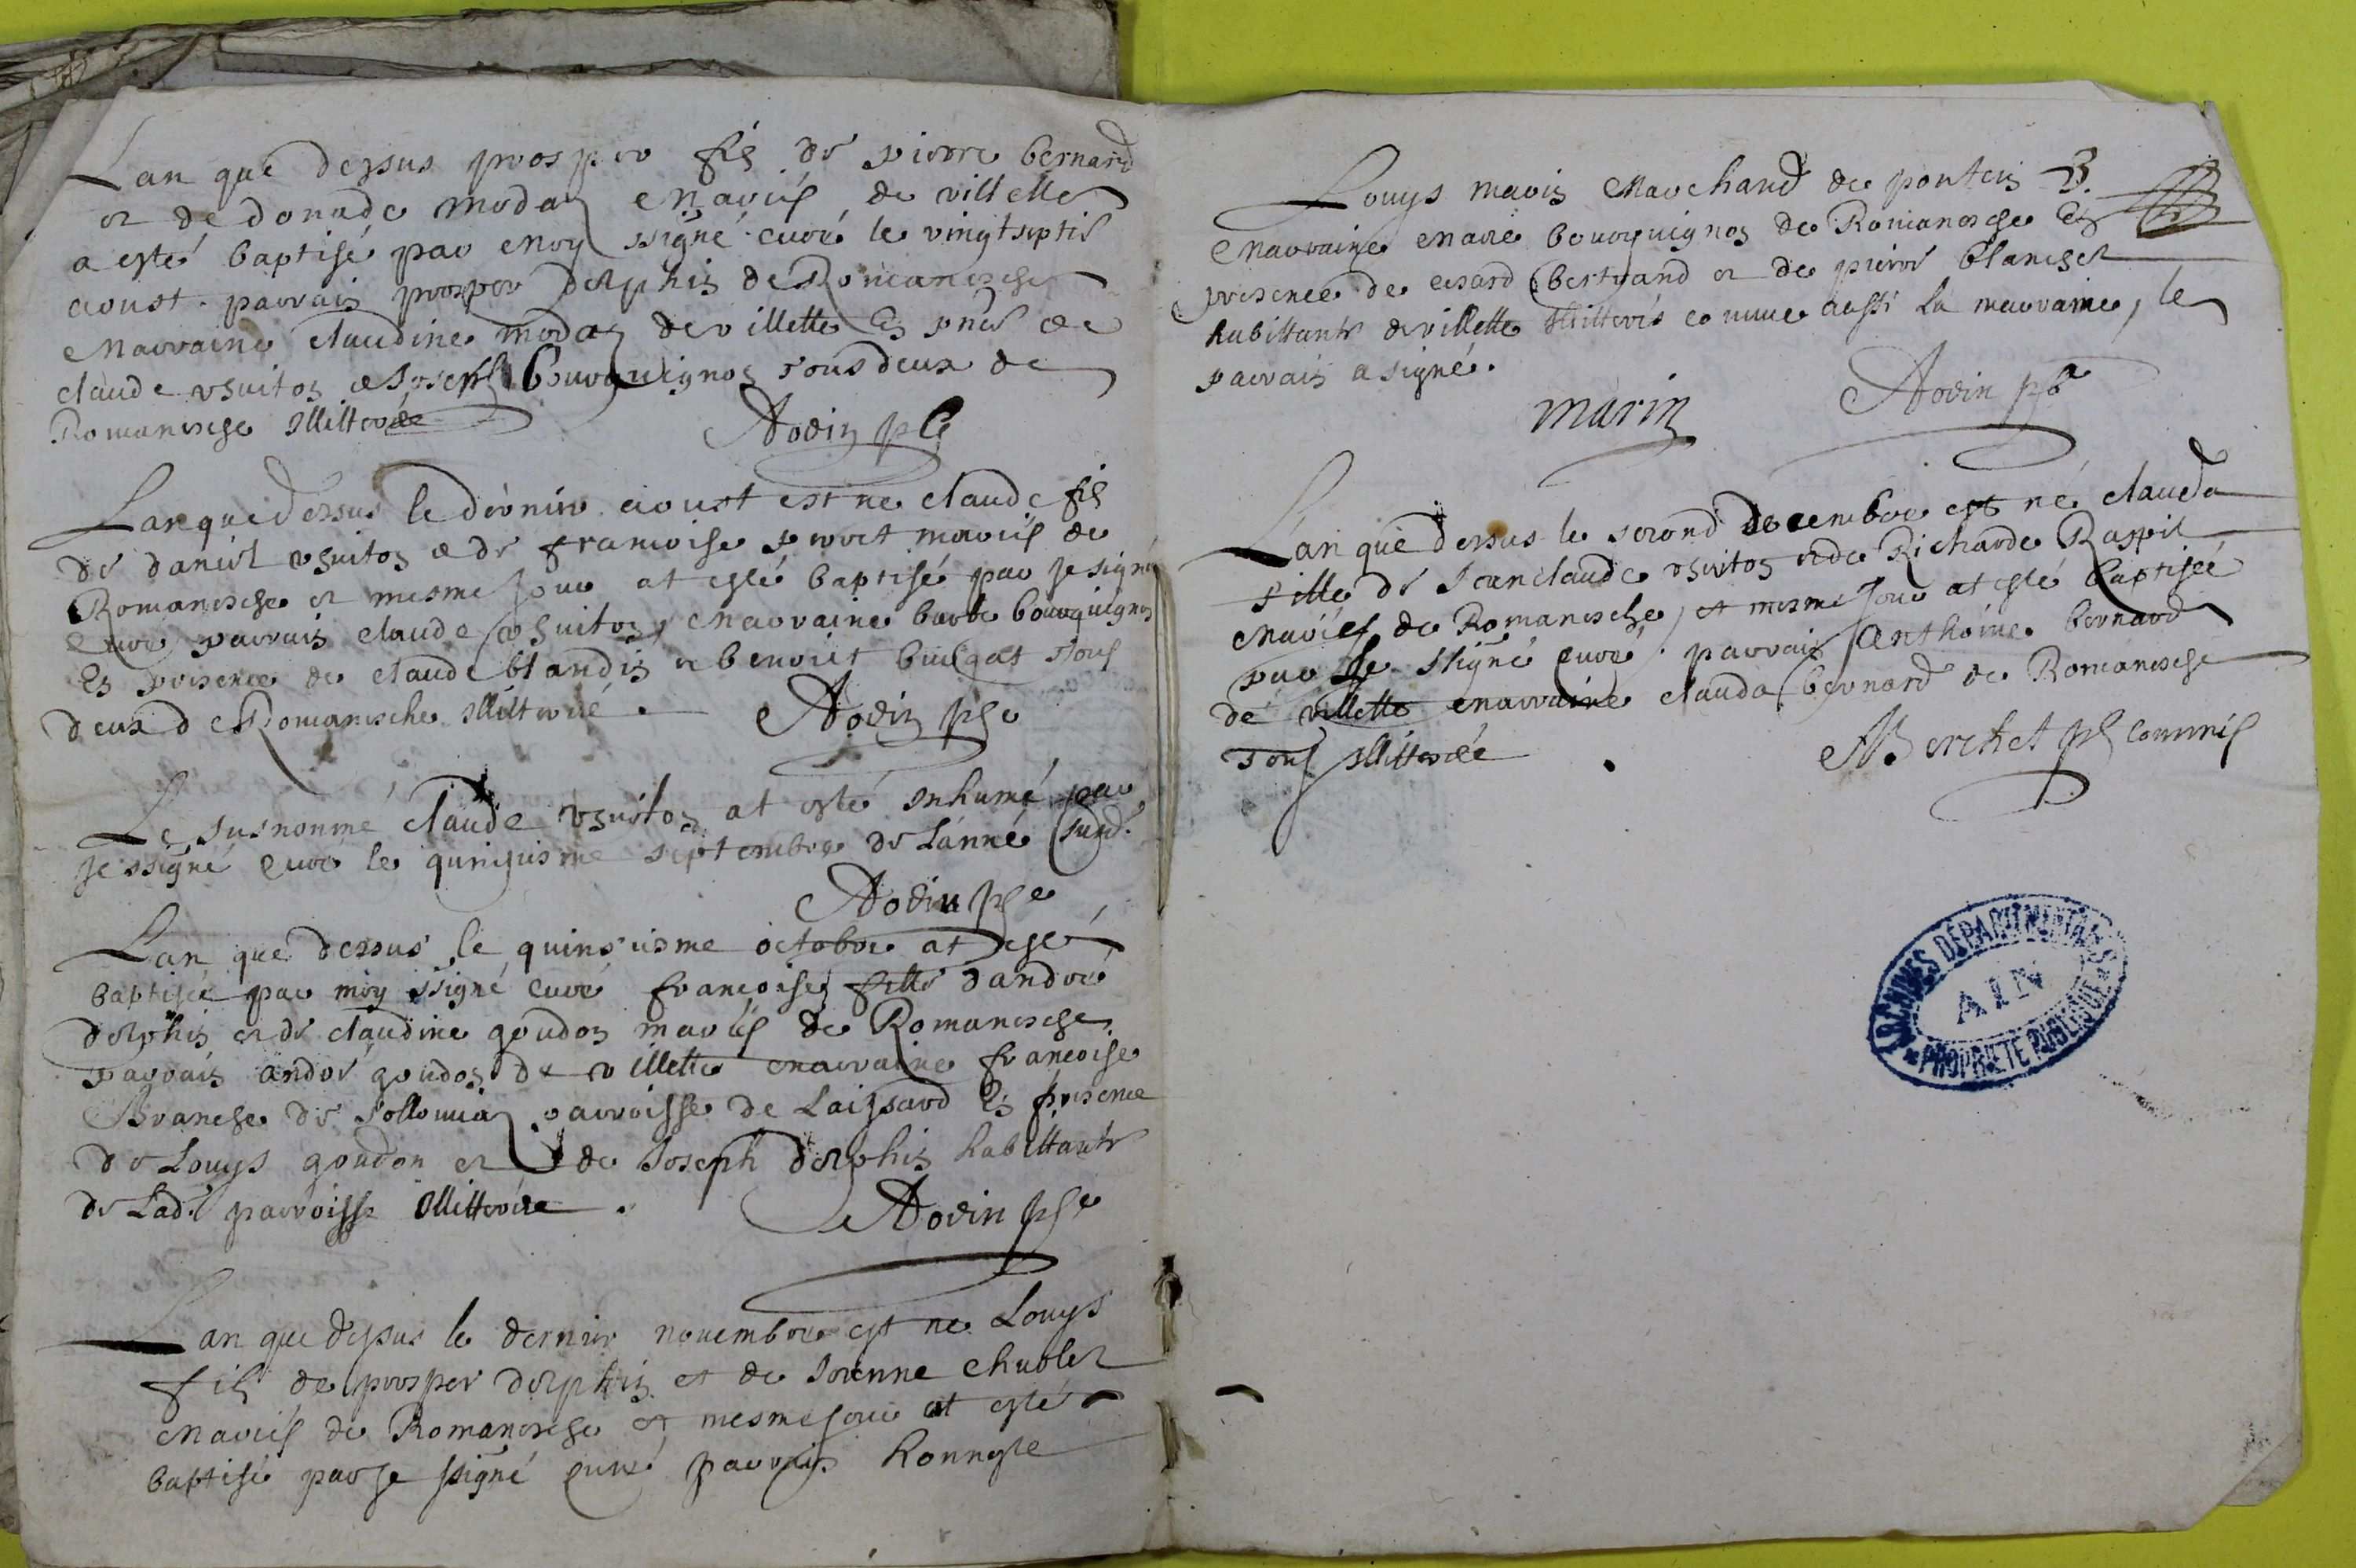 Lan que dessus prosper fils de pierre bernard
et de donade modas mariés de villette
a esté baptisé par moy ssigné curé le vingtseptie
aoust. parrain prosper delphin de Romanesche
marraine claudine modas de villette En pnce de
claude vsuiton et Joseph bourguignon tous deux de
Romanesche illitterée
Aodin pbr
Lan que dessus le dernier aoust est ne claude fils
de daniel vsuiton et de francoise perret mariés de
Romanesche et mesme jour at esté baptisé par je signé
curé parrain claude vsuiton, marraine barbe bourguignon
En presence de claude blandin et benoict tous
deux de Romanische illitterée.
Aodin pbr
Le susnommé claude vsuiton at esté inhumé par
je ssigné curé le septembre de Lanné susd.
Aodin pbr
Lan que dessus le quinsiesme octobre at esté
baptisée par moy ssigné curé francoise fille dandré
delphin et de claudine goudon mariés de Romanesche
parrain andré goudon de villette marraine francoise
Branche de Sollomia parroisse de Laissard En presence
de Louys goudon et de Joseph delphin habittants
de Lad. parroisse illitterée.
Aodin pbr
Lan que dessus le dernier nouembre est ne Louys
fils de prosper delphin et de Jeanne chublet
mariés de Romanesche et mesme jour at esté
baptisé par je ssigné curé parrain honneste
Louys marin marchand de ponteins
marraine marie bourguignon de Romanesche En
presence de bertrand et de pierre blanchet
habittants de villette illitterés comme aussi la marraine, le
parrain a signé.
marin
Aodin pbr
Lan que dessus le second decembre est né clauda
fille de Jean claude vsuiton et de Richarde Raspil
mariés de Romanesche, et mesme jour at esté baptisée
par je ssigné curé. parrain Anthoine bernard
de villette marraine clauda bernard de Romanesche
tous illitterée.
Berchet pbr commis
ARCHIVES DÉPARTEMENTALES
AIN
PROPRIÉTÉ PUBLIQUE